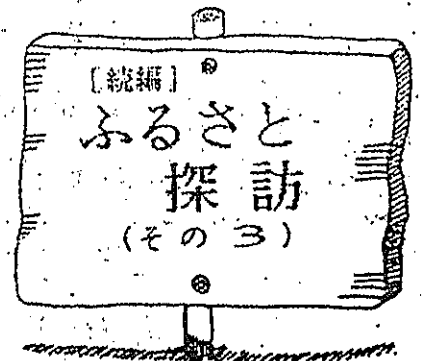 ［続編］
ふるさと
探訪
（その３）